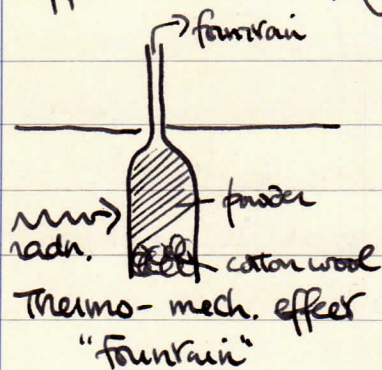 fountain
powder
radn.
cotton wool
Thermo-mech. effect
"fountain"